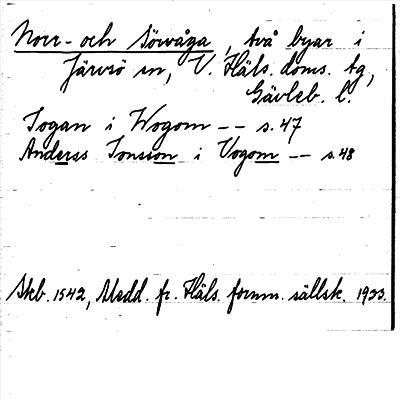 Norr- och Sörvåga, två byar i
Järvsö sn, V. Häls. doms. tg,
Gävleb. l.
Iogan i Wogom -- s. 47
Anderss Ionsson i Vogom -- s. 48
Skb. 1542, Medd. fr. Häls. fornm. sällsk. 1933.